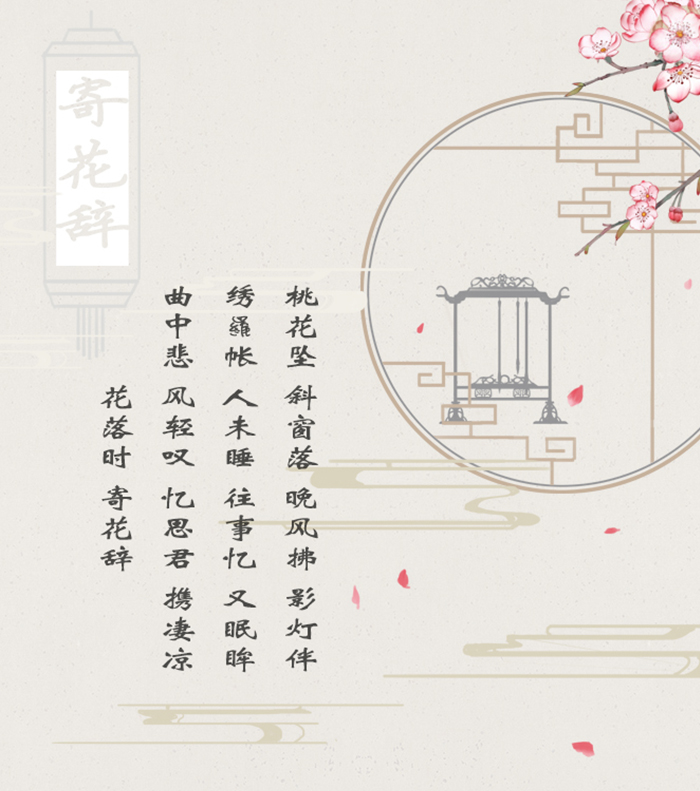 寄花辞
桃花坠 斜窗落 晚风拂 影灯伴
绣羅帐 人未睡 往事忆 又眠眸
曲中悲 风轻叹 忆思君 携凄凉
花落时 寄花辞